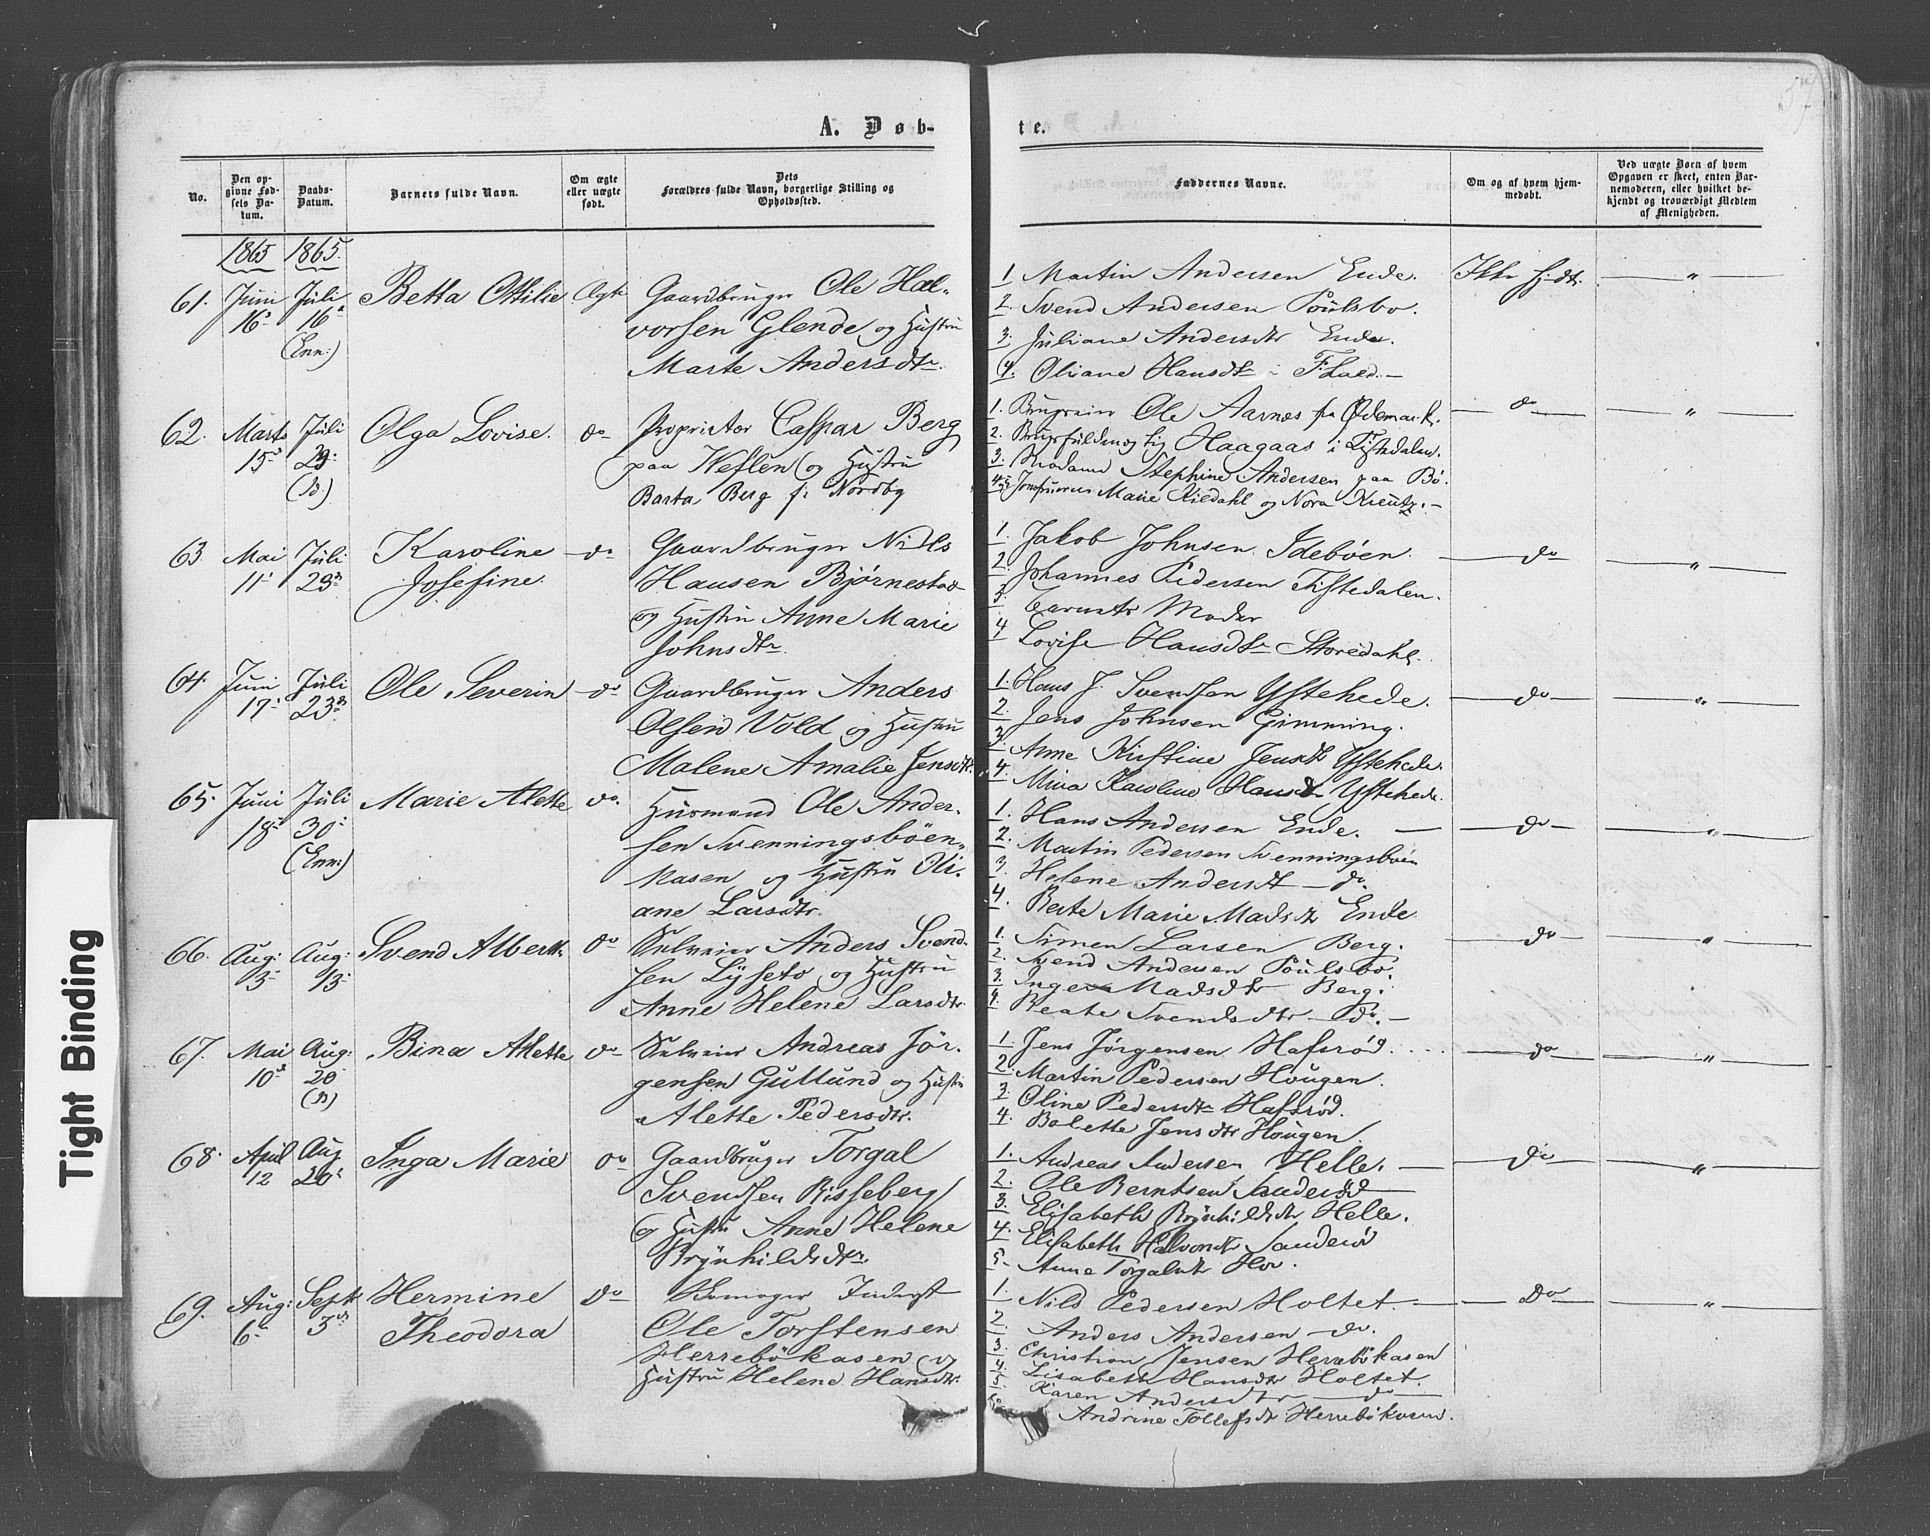 57
A. Døb-
te.
No.
Den op-
givne Fød-
sels Da-
tum.
Daabs-
Datum.
Barnets fulde Navn.
Om ægte
eller uægte
født.
Dets
Forældres fulde Navn, borgerlige Stilling og
Opholdssted.
Faddernes Navne.
Om og af hvem hjem-
medøbt.
Ved uægte Børn af hvem
Opgaven er skeet, enten Bar-
nemoderen, eller hvilket be-
kjendt og troværdigt Medlem
af Menigheden.
1865 1865.
61. Juni Juli Betta Ottilie Ægte Gaardbruger Ole Hal-
16 16 vorsen Glende og Hustru
(Enn:) Marte Andersdtr.
1. Martin Andersen Ende. Ikke hjdt. "
2. Svend Andersen Poulsbo.
3. Juliane Andersdtr Ende.
4. Oliane Hansdtr i
62. Marts Juli Olga Lovise. do Proprietær Caspar Berg
15 23 paa Veflen og Hustru
(B.) Barta Berg f: Nordby
1. Ole Aarnes fra Ødemark. do "
2. Haagaas i Tistedalen.
3. Madame Stephine Andersen paa Bø.
4 Marie Kildahl og Nora Kreutz.
63. Mai Juli Karoline do Gaardbruger Niels
11 23 Josefine. Hansen Bjørnestad
og Hustru Anne Marie
Johnsdtr.
1. Jakob Johnsen Idebøen. do "
2. Johannes Pedersen Tistedalen.
3. Barnets Moder
4 Lovise Hansdtr Storedahl.
64. Juni Juli Ole Severin do Gaardbruger Anders
17 23 Olsen Vold og Hustru
Malene Amalie Jensdtr.
1. Hans J. Svendsen Ystehede. do "
2. Jens Johnsen Gimming.
3. Anne Kirstine Jensdtr Ystehede.
4. Mina Karoline Hansdtr Ystehede.
65. Juni Juli Marie Alette do. Husmand Ole Ander-
18 30 sen Svenningsbøen-
(Enn:) kasen og Hustru Oli-
ane Larsdtr.
1. Hans Andersen Ende. do "
2. Martin Pedersen Svenningsbøen
3. Helene Andersdtr do.
4. Berte Marie Madsdtr Ende
66. Aug: Aug: Svend Albert do Selveier Anders Svend-
3 13. sen Lyseto og Hustru
Anne Helene Larsdtr.
1. Simen Larsen Berg. do "
2. Svend Andersen Poulsbo.
3. Inger Madsdtr Berg.
4. Beate Svendsdtr do.
67. Mai Aug: Bina Alette do Selveier Andreas Jør-
10 20 gensen Gullund og Hustru
(B) Alette Pedersdtr.
1 Jens Jørgensen Hafsrød. do "
2 Martin Pedersen Hougen.
3 Oline Pedersdtr Hafsrød.
4. Bolette Jensdtr Hougen.
68. April Aug Inga Marie do Gaardbruger Torgal
12 20 Svendsen Risseberg
og Hustru Anne Helene
Brynhildsdtr.
1. Andreas Andersen Helle. do "
2. Ole Berntsen Sanderød
3. Elisabeth Brynhildsdtr Helle.
4. Elisabeth Halvorsdtr Sanderød
5 Anne Torgalsdtr Hov.
69. Aug: Sept: Hermine do Inderst
6 3 Theodora Ole Torstensen
Herrebøkasen og
Hustru Helene Hansdtr.
1. Nils Pedersen Holtet. do "
2. Anders Andersen do.
3 Christian Jensen Herrebøkasen
4. Lisabeth Hansdtr Holtet.
5 Karen Andersdtr do
6 Andrine Tollefsdtr Herrebøkasen.
Tight Binding